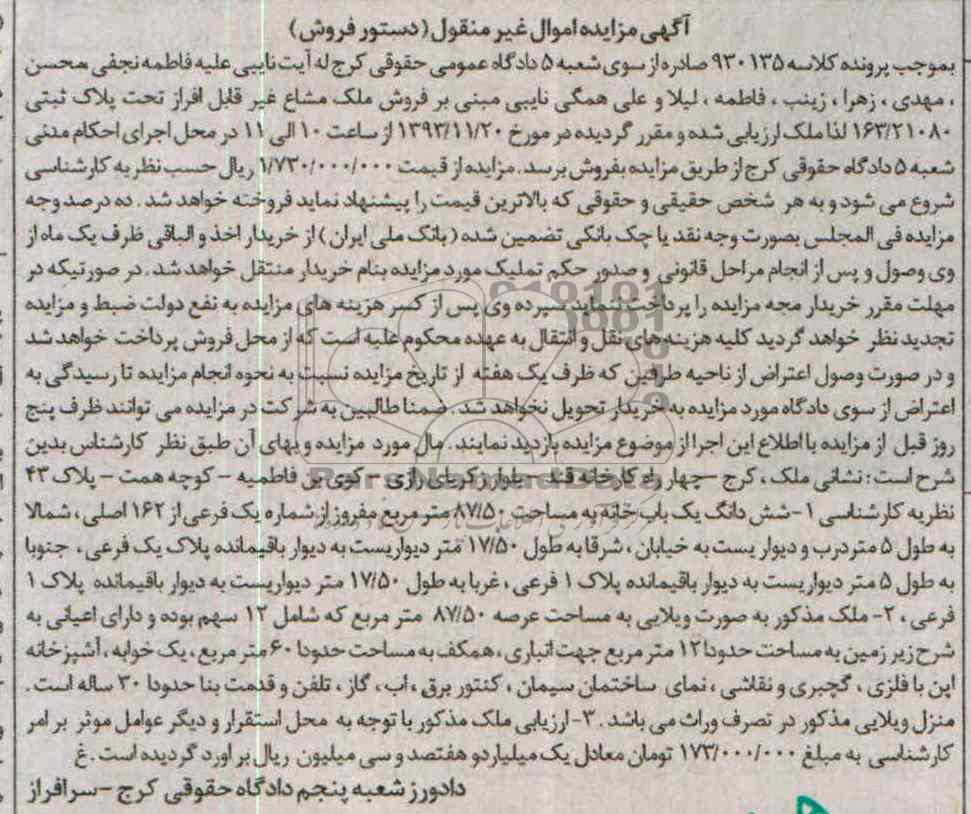 آگهی مزایده اموال غیر منقول (دستور فروش)
بموجب پرونده کلاسه ۹۳۰۱۳۵ صادره از سوی شعبه ۵ دادگاه عمومی حقوقی کرج له آیت نایبی علیه فاطمه نجفی محسن
، مهدی ، زهرا ، زینب ، فاطمه ، لیلا و علی همگی نایبی مبنی بر فروش ملک مشاع غیر قابل افراز تحت پلاک ثبتی
۱۶۳/۲۱۰۸۰ لذا ملک ارزیابی شده و مقرر گردیده در مورخ ۱۳۹۳/۱۱/۲۰ از ساعت ۱۰ الی ۱۱ در محل اجرای احکام مدنی
شعبه ۵ دادگاه حقوقی کرج از طریق مزایده بفروش برسد. مزایده از قیمت ۱/۷۳۰/۰۰۰/۰۰۰ ریال حسب نظریه کارشناسی
شروع می شود و به هر شخص حقیقی و حقوقی که بالاترین قیمت را پیشنهاد نماید فروخته خواهد شد . ده درصد وجه
مزایده فی المجلس بصورت وجه نقد یا چک بانکی تضمین شده (بانک ملی ایران) از خریدار اخذ و الباقی ظرف یک ماه از
وی وصول و پس از انجام مراحل قانونی و صدور حکم تملیک مورد مزایده بنام خریدار منتقل خواهد شد . در صورتیکه در
مهلت مقرر خریدار مجه مزایده را پرداخت ننماید سپرده وی پس از کسر هزینه های مزایده به نفع دولت ضبط و مزایده
تجدید نظر خواهد گردید کلیه هزینه های نقل و انتقال به عهده محکوم علیه است که از محل فروش پرداخت خواهد شد
و در صورت وصول اعتراض از ناحیه طرفین که ظرف یک هفته از تاریخ مزایده نسبت به نحوه انجام مزایده تا رسیدگی به
اعتراض از سوی دادگاه مورد مزایده به خریدار تحویل نخواهد شد . ضمنا طالبین به شرکت در مزایده می توانند ظرف پنج
روز قبل از مزایده با اطلاع این اجرا از موضوع مزایده بازدید نمایند. مال مورد مزایده و بهای آن طبق نظر کارشناس بدین
شرح است : نشانی ملک ، کرج – چهار راه کارخانه قند – بلوار زکریای رازی – کوی بن فاطمیه – کوچه همت – پلاک ۴۳
نظریه کارشناسی ۱- شش دانگ یک باب خانه به مساحت ۸۷/۵۰ متر مربع مفروز از شماره یک فرعی از ۱۶۲ اصلی ، شمالا
به طول ۵ متر درب و دیوار یست به خیابان ، شرقا به طول ۱۷/۵۰ متر دیواریست به دیوار باقیمانده پلاک یک فرعی ، جنوبا
به طول ۵ متر دیواریست به دیوار باقیمانده پلاک ۱ فرعی ، غربا به طول ۱۷/۵۰ متر دیواریست به دیوار باقیمانده پلاک ۱
فرعی ، ۲- ملک مذکور به صورت ویلایی به مساحت عرصه ۸۷/۵۰ متر مربع که شامل ۱۲ سهم بوده و دارای اعیانی به
شرح زیر زمین به مساحت حدودا ۱۲ متر مربع جهت انباری ، همکف به مساحت حدودا ۶۰ متر مربع ، یک خوابه ، آشپزخانه
اپن با فلزی ، گچبری و نقاشی ، نمای ساختمان سیمان ، کنتور برق ، اب ، گاز ، تلفن و قدمت بنا حدودا ۳۰ ساله است .
منزل ویلایی مذکور در تصرف وراث می باشد . ۳- ارزیابی ملک مذکور با توجه به محل استقرار و دیگر عوامل موثر بر امر
کارشناسی به مبلغ ۱۷۳/۰۰۰/۰۰۰ تومان معادل یک میلیارد و هفتصد و سی میلیون ریال بر اورد گردیده است . غ
دادورز شعبه پنجم دادگاه حقوقی کرج – سرافراز